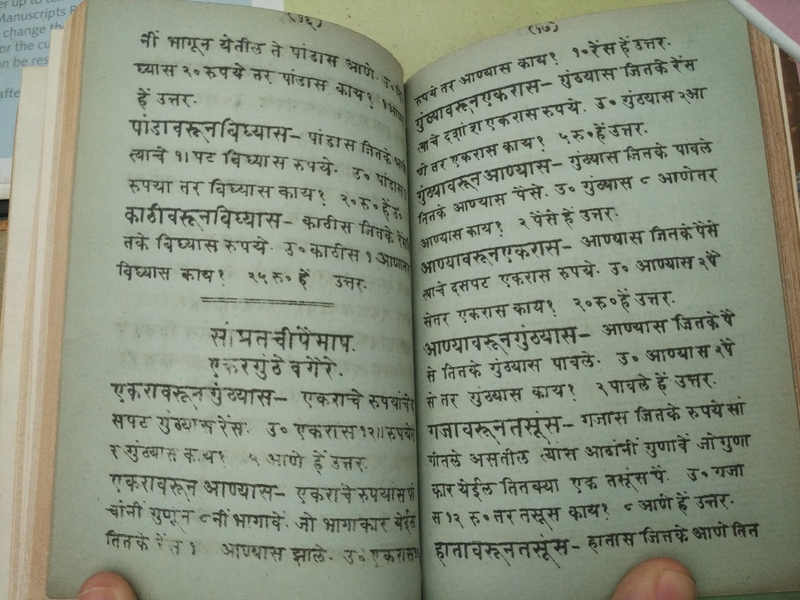 er up to
Manuscripts R
change the
or the cu
n be res
after
(५६)
नीं भागून येतील ते पांडास आणे. उ०
घ्यास २० रुपये तर पांडास काय? १
हें उत्तर.
पांडावरून बिघ्यास— पांडास जितके
त्याचे १। पट बिघ्यास रुपये. उ० पांडास
रुपया तर बिघ्यास काय? २० रु० हें उ०
काठीवरून बिघ्यास— काठीस जितके रेंस
तके बिघ्यास रुपये. उ० काठीस १ आणा
बिघ्यास काय? २५ रु० हें उत्तर.
सांप्रतचीं पैमाप.
एकर गुंठे वगेरे.
एकरावरून गुंठ्यास— एकराचे रुपयांचे
सपट गुंठ्यास रेंस. उ० एकरास १२॥ रुपये
र गुंठ्यास काय? ५ आणे हें उत्तर.
एकरावरून आण्यास— एकराचे रुपयास पां
चांनीं गुणून ८ नीं भागावें. जो भागाकार येईल
तितके रेंस आण्यास झाले. उ० एकरास
(५७)
रुपये तर आण्यास काय? १० रेंस हें उत्तर.
गुंठ्यावरून एकरास— गुंठ्यास जितके रेंस
त्याचे दशांश एकरास रुपये. उ० गुंठ्यास २ आ
णे तर एकरास काय? ५ रु० हें उत्तर.
गुंठ्यावरून आण्यास— गुंठ्यास जितके पावले
तितके आण्यास पैसे. उ० गुंठ्यास ८ आणे तर
आण्यास काय? २ पैसे हें उत्तर.
आण्यावरून एकरास— आण्यास जितके पैसे
त्याचे दसपट एकरास रुपये. उ० आण्यास २ पै
से तर एकरास काय? २० रु० हें उत्तर.
आण्यावरून गुंठ्यास— आण्यास जितके पै
से तितके गुंठ्यास पावले. उ० आण्यास २ पै
सं तर गुंठ्यास काय? २ पावले हें उत्तर.
गजावरून तसूंस— गजास जितके रुपये सां
गीतले असतील त्यांस आठांनीं गुणावें जो गुणा
कार येईल तितक्या एक तसूंस पै. उ० गजा
स १२ रु० तर तसूस काय? ८ आणे हें उत्तर.
हातावरून तसूंस— हातास जितके आणे तित